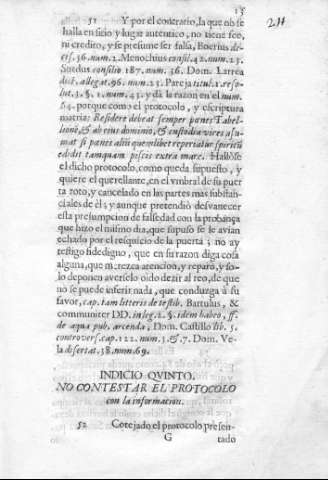 25
211
51 Y por el contrario, la que no se
halla en sitio y lugar autentico, no tiene fee,
ni credito, y se presume ser falsa, Boerius de-
cis. 36. num. 2. Menochius consil. 42. num. 23.
Surdus consilio 187. num. 36. Dom. Larrea
dict. allegat. 96. num. 23. Pareja titul. 1. reso-
lut. 3. §. 1. num. 43. y da la razon en el num.
64. porque como el protocolo, y escriptura
matriz: Residere debeat semper penes Tabel-
lionē, & ab eius dominio, & custodia vires assu-
mat si penes aliū quemlibet reperiatur spiritū
edidit tamquam piscis extra mare. Hallòse
el dicho protocolo, como queda supuesto, y
quiere el querellante, en el vmbral de su puer
ta roto, y cancelado en las partes mas substan-
ciales de èl; y aunque pretendiò desvanecer
esta presumpcion de falsedad con la probança
que hizo el mismo dia, que supuso se le avian
echado por el resquicio de la puerta; no ay
testigo fidedigno, que en su razon diga cosa
alguna, que merezca atencion, y reparo, y so-
lo deponen averselo oìdo dezir al reo, de que
no se puede inferir nada, que conduzga à su
favor, cap. tam litteris de testib. Bartulus, &
communiter DD. in leg. 2. §. idem habeo, ff.
de aqua pub. arcenda, Dom. Castillo lib. 5.
controvers. cap. 122. num. 5. & 7. Dom. Ve-
la disertat. 38. num. 69.
INDICIO QVINTO.
NO CONTESTAR EL PROTOCOLO
con la informacion.
52 Cotejado el protocolo presen-
G tado